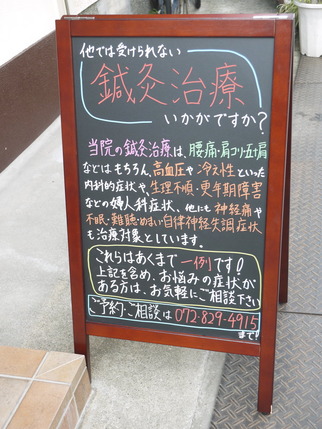 他では受けられない
鍼灸治療
いかがですか?
当院の鍼灸治療は、腰痛・肩コリ・五十肩
などはもちろん、高血圧や冷え性といった
内科的症状や、生理不順・更年期障害
などの婦人科症状、他にも神経痛や
不眠・難聴・めまい自律神経失調症状
も治療対象としています。
これらはあくまで一例です!
上記を含め、お悩みの症状が
ある方は、お気軽にご相談下さい
ご予約・ご相談は072-829-4915
まで!